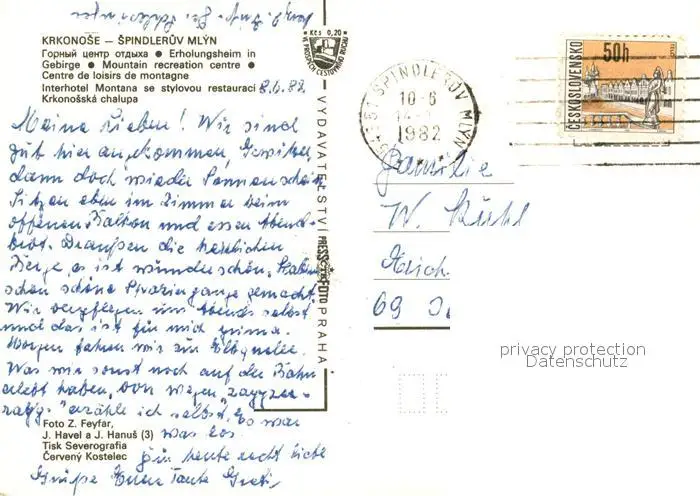 KRKONOŠE — ŠPINDLERŮV MLÝN
Горный центр отдыха ● Erholungsheim in
Gebirge ● Mountain recreation centre ●
Centre de loisirs de montagne
Interhotel Montana se stylovou restaurací 8.6.82.
Krkonošská chalupa
Meine Lieben! Wir sind
gut hier angekommen, Gewitter,
dann doch wieder Sonnenschein
Sitzen eben im Zimmer beim
offenen Balkon und essen Abend-
brot. Draußen die herrlichen
Berge, es ist wunderschön. Haben
schon schöne Spaziergänge gemacht.
Wir verpflegen uns abends selbst
und das ist für mich prima.
Morgen fahren wir zur Elbquelle.
Was wir sonst noch auf der Bahn
erlebt haben, von wegen
erzähle ich selbst. Es war
was los.
Für heute recht liebe
Grüße Euren Tante
Foto Z. Feyfar,
J. Havel a J. Hanuš (3)
Tisk Severografia
Červený Kostelec
Kčs 0,20
VYDAVATELSTVÍ PRESSFOTO PRAHA
ŠPINDLERŮV MLÝN
10-6
1982
ČESKOSLOVENSKO
50h
Familie
W.
69
privacy protection
Datenschutz